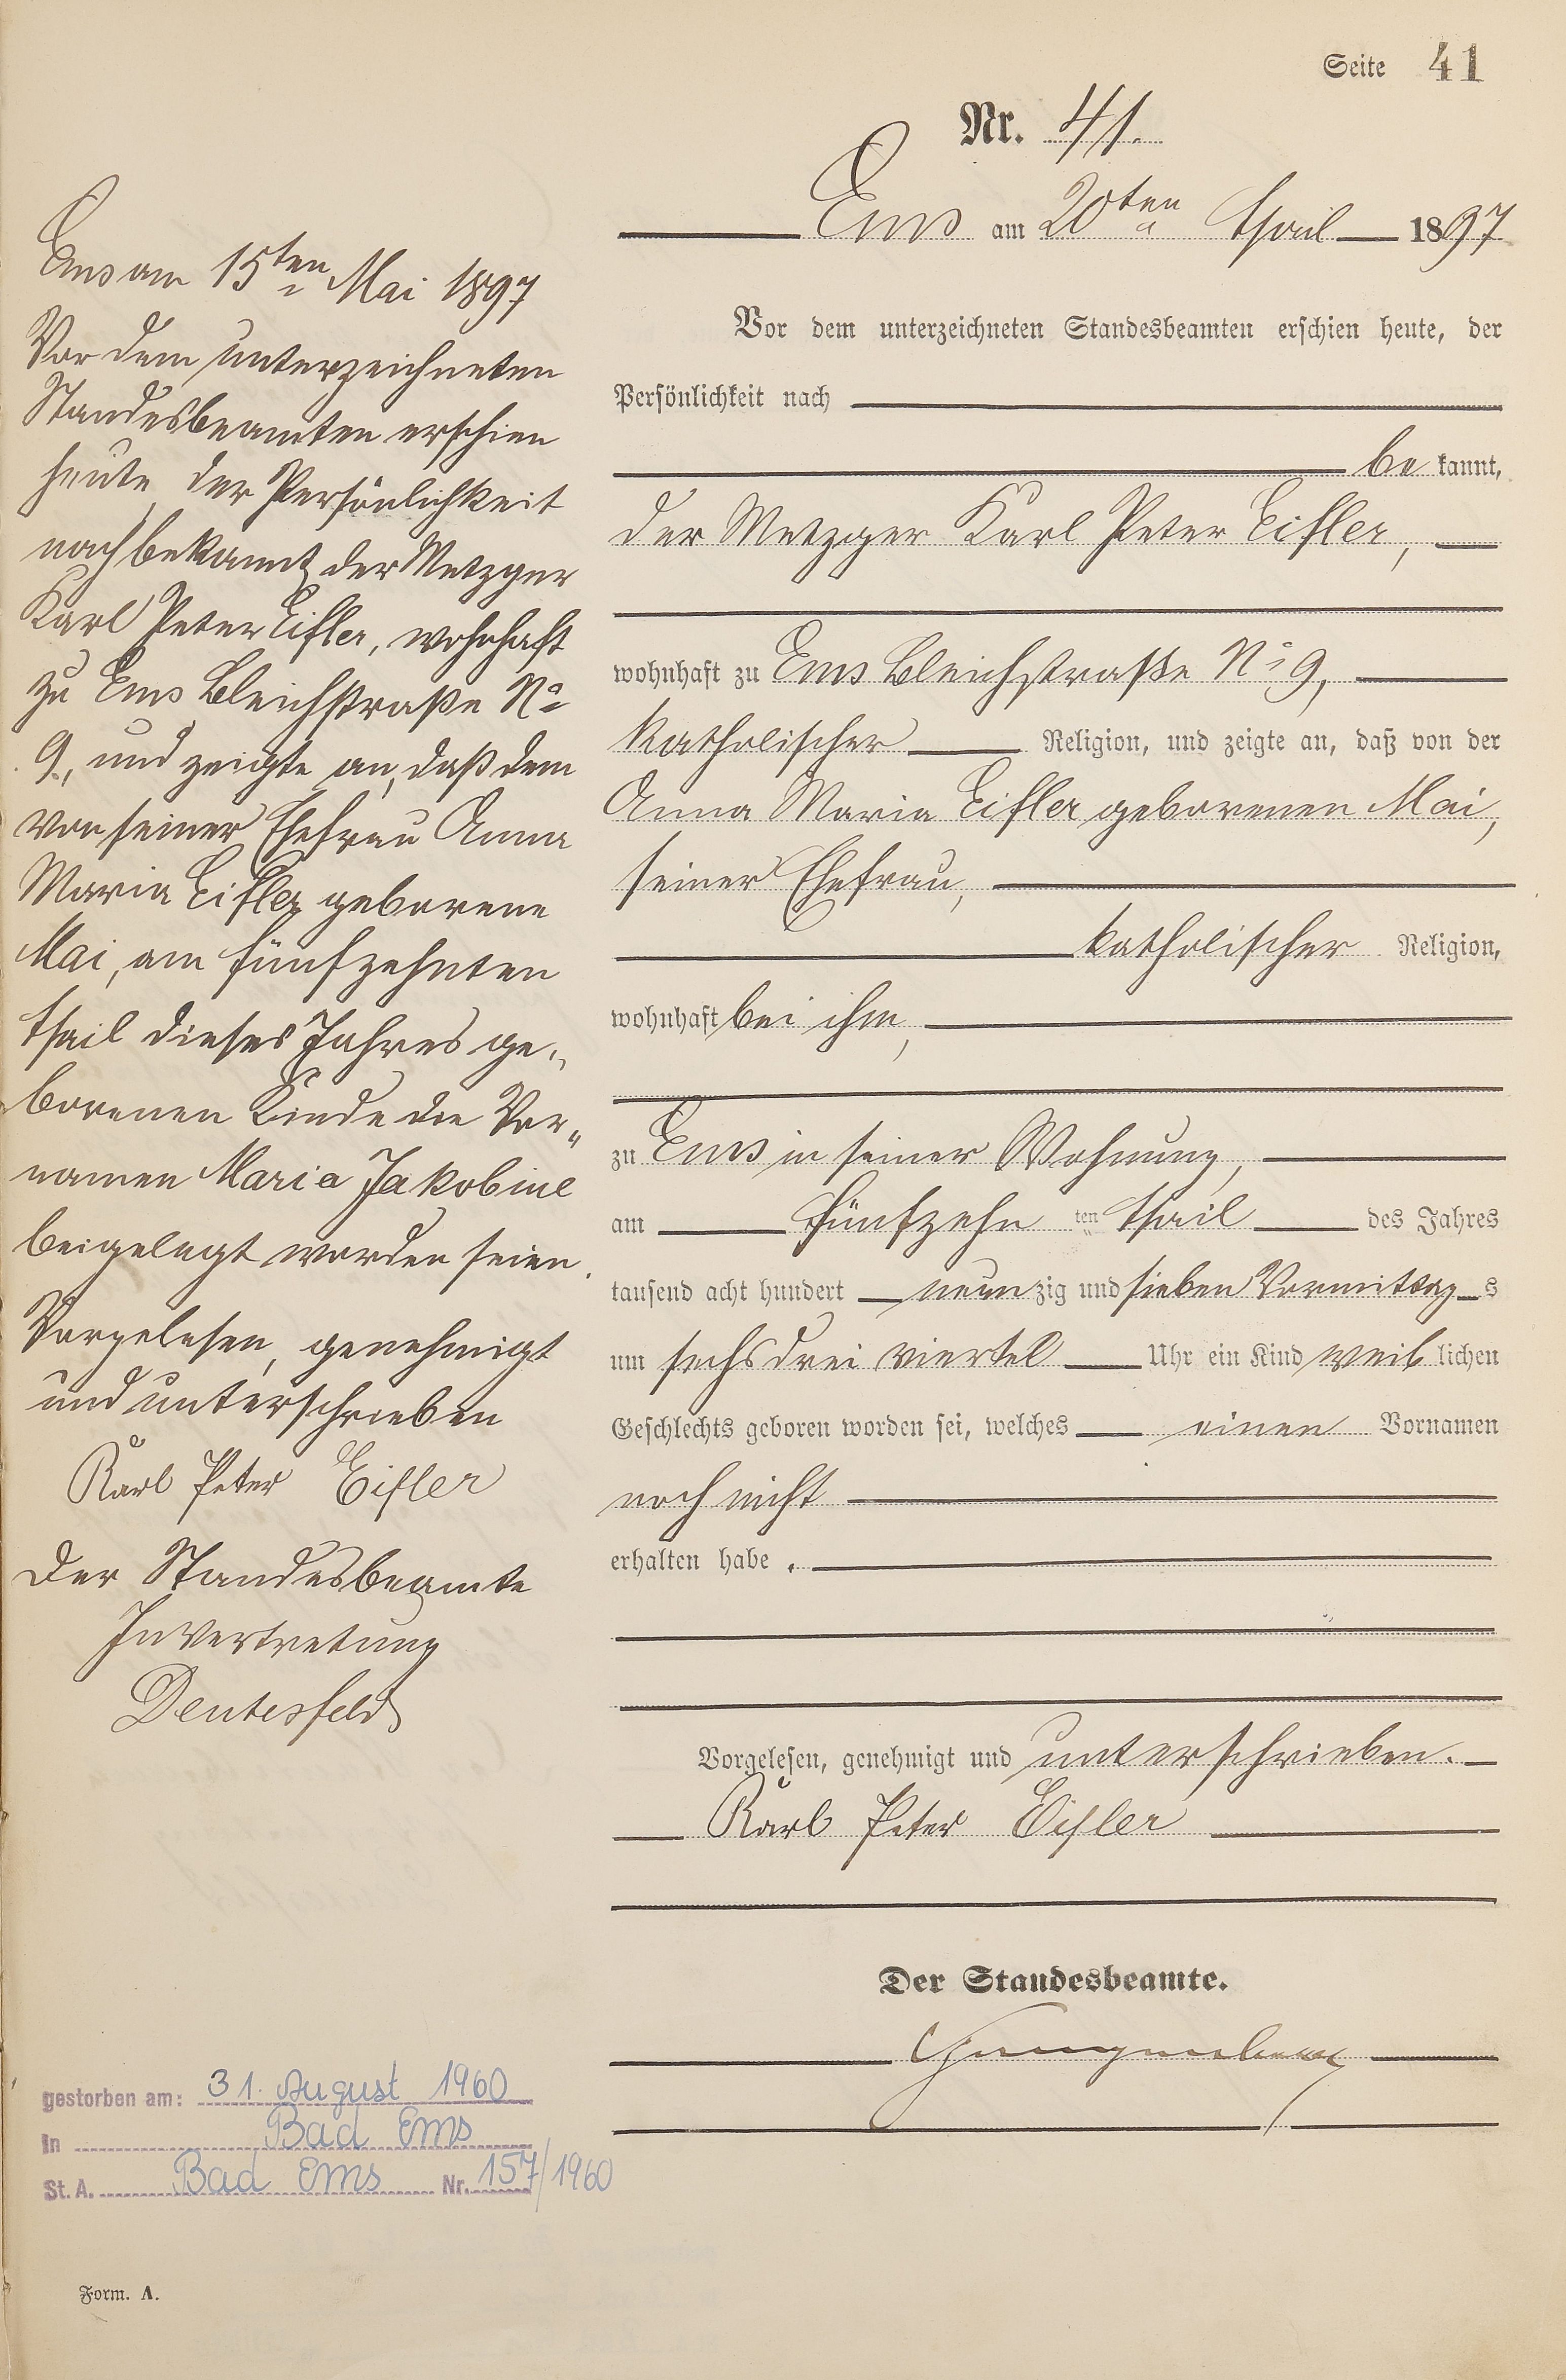 Seite 41
Nr. 41.
Ems am 20ten April 1897
Vor dem unterzeichneten Standesbeamten erschien heute, der
Persönlichkeit nach
be kannt,
der Metzger Karl Peter Eifler,
wohnhaft zu Ems Bleichstraße No 9,
katholischer Religion, und zeigte an, daß von der
Anna Maria Eifler geborenen Mai,
seiner Ehefrau,
katholischer Religion,
wohnhaft bei ihm,
zu Ems in seiner Wohnung,
am fünfzehn ten April des Jahres
tausend acht hundert neun zig und sieben Vormittag s
um sechs drei viertel Uhr ein Kind weib lichen
Geschlechts geboren worden sei, welches einen Vornamen
noch nicht
erhalten habe.
Vorgelesen, genehmigt und unterschrieben.
Karl Peter Eifler
Der Standesbeamte.
Ems am 15ten Mai 1897
Vor dem unterzeichneten
Standesbeamten erschien
heute, der Persönlichkeit
nach bekannt, der Metzger
Karl Peter Eifler, wohnhaft
zu Ems Bleichstraße No
9, und zeigte an, daß dem
von seiner Ehefrau Anna
Maria Eifler geborene
Mai, am fünfzehnten
April dieses Jahres ge„
borenen Kinde die Vor„
namen Maria Jakobine
beigelegt worden seien.
Vorgelesen, genehmigt
und unterschrieben
Karl Peter Eifler
Der Standesbeamte
In Vertretung
Deutesfeld
gestorben am: 31. August 1960
in Bad Ems
St. A. Bad Ems Nr. 157/1960
Form. A.